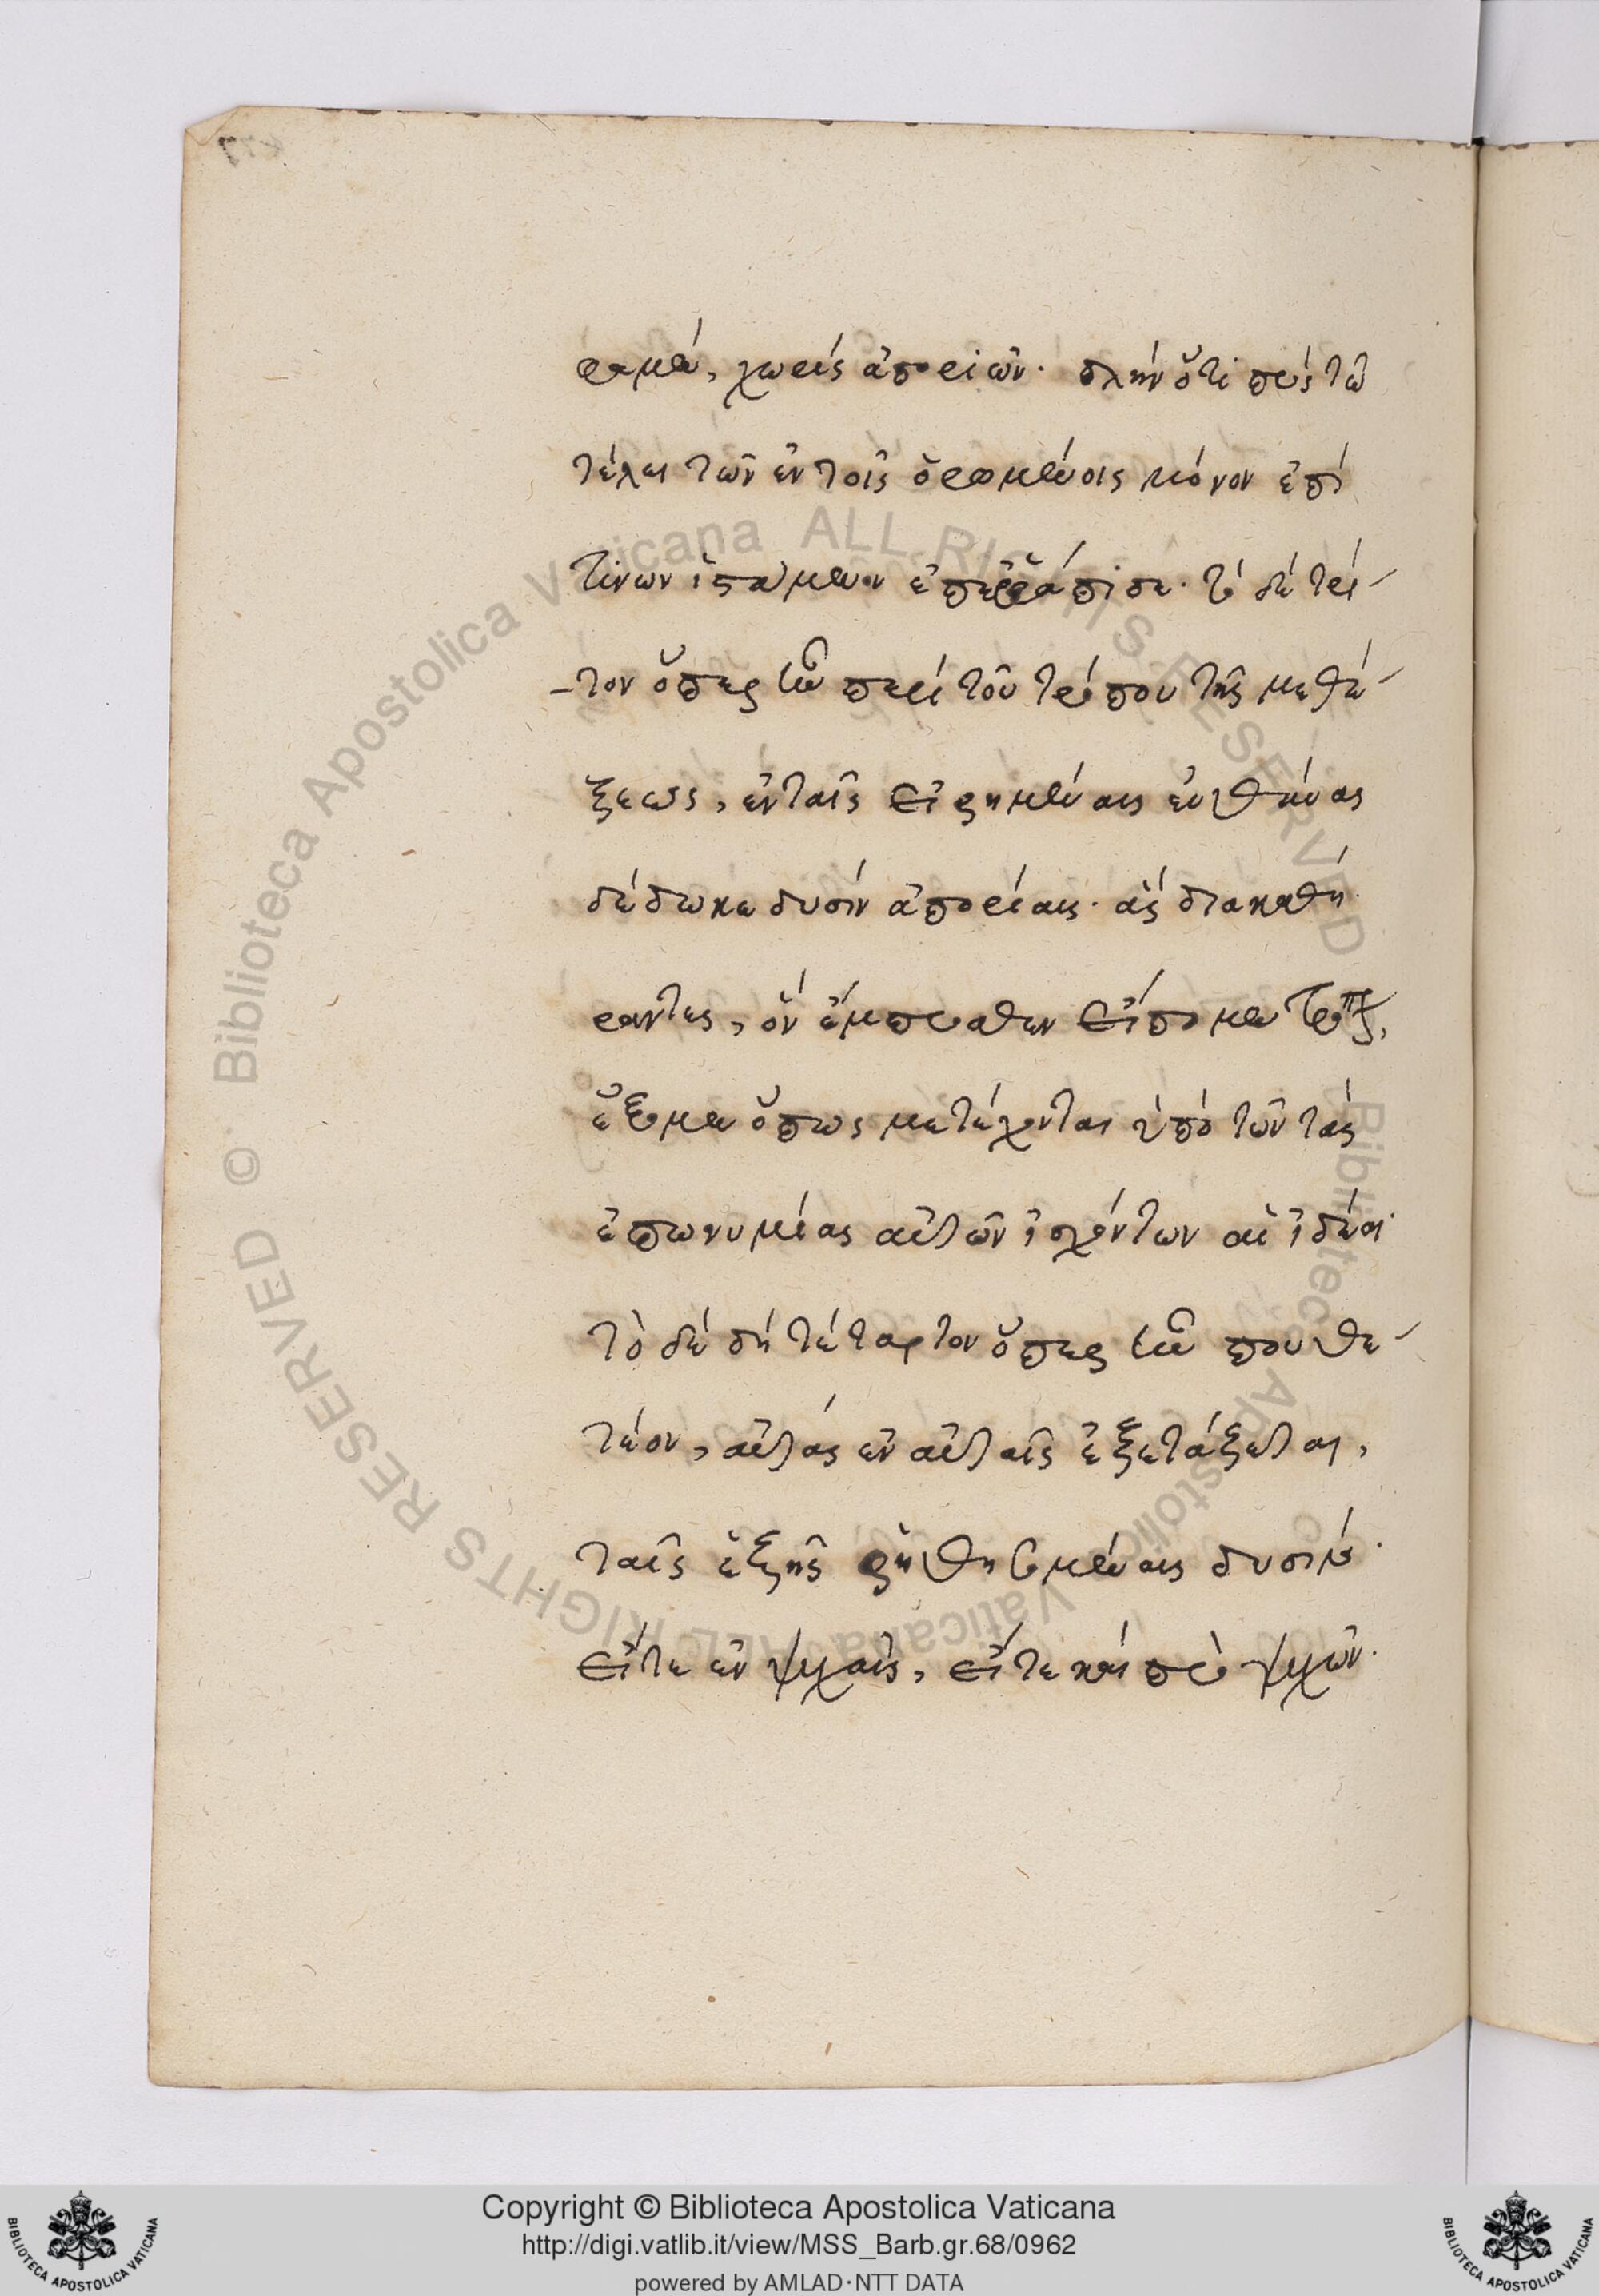 ραμεν, χωρὶς ἀποριῶν. πλὴν ὅτι πρὸς τῷ
τέλει τῶν ἐν τοῖς ὁρωμένοις μόνον ἐπί
τινων ἱστάμενον ἐπερράπισε. τὸ δὲ τρί-
-τον ὅπερ ἦν περὶ τοῦ τρόπου τῆς μεθέ-
ξεως, ἐν ταῖς εἰρημέναις εὐθύνας
δέδωκε δυσὶν ἀπορίαις. ἃς διακαθή
ραντες, ὃν ἔμπροσθεν εἴπομεν τρόπον,
ἕξομεν ὅπως μετέχονται ὑπὸ τῶν τὰς
ἐπωνυμίας αὐτῶν ἰσχόντων αἱ ἰδέαι.
τὸ δὲ δὴ τέταρτον ὅπερ ἦν που θε-
τέον, αὐτὰς ἐν αὐταῖς ἐξετάξεται,
ταῖς ἑξῆς ῥηθησομέναις δυσὶν.
εἴτε ἐν ψυχαῖς, εἴτε καὶ πρὸ ψυχῶν.
Copyright © Biblioteca Apostolica Vaticana
http://digi.vatlib.it/view/MSS_Barb.gr.68/0962
powered by AMLAD·NTT DATA
BIBLIOTECA APOSTOLICA VATICANA
BIBLIOTECA APOSTOLICA VATICANA
© Biblioteca Apostolica Vaticana ALL RIGHTS RESERVED
Biblioteca Apostolica Vaticana ALL RIGHTS RESERVED